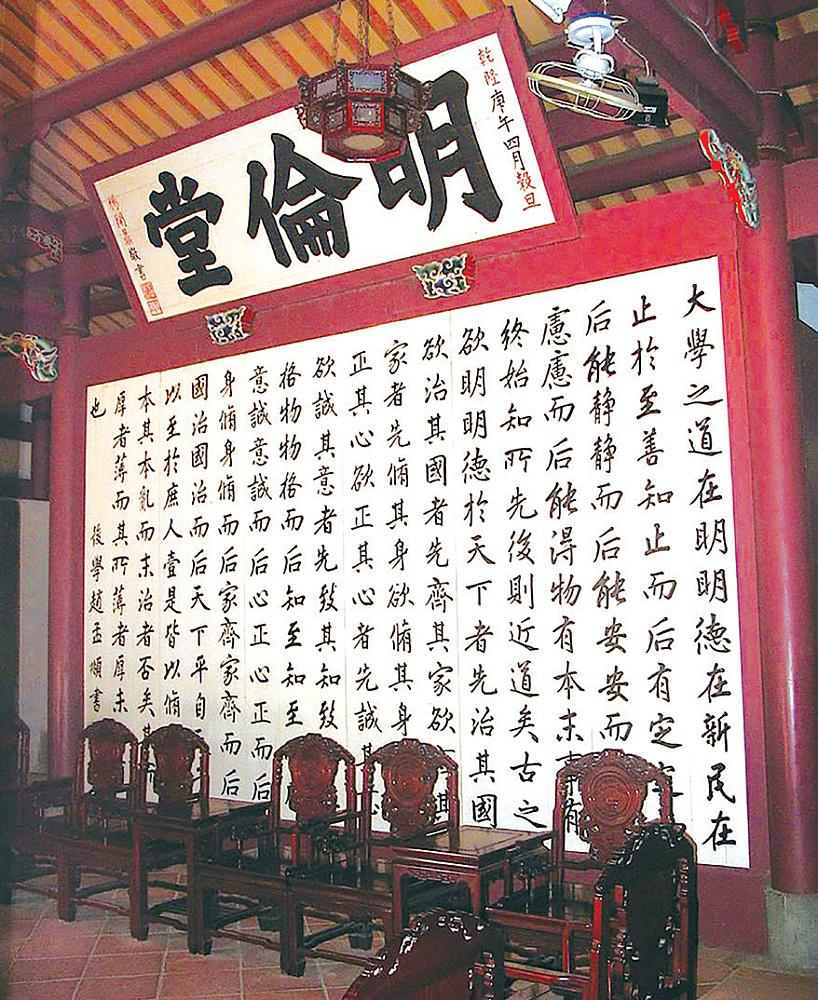 乾隆庚午四月穀旦
明倫堂
楊開鼎敬書
大學之道在明明德在新民在
止於至善知止而后有定
后能静静而后能安安而
慮慮而后能淂物有本末事有
終始知所先後則近道矣古之
欲明明德於天下者先治其國
欲治其國者先齊其家欲其
家者先脩其身欲脩其身
正其心欲正其心者先誠其
欲誠其意者先致其知致
格物物格而后知至知至
意誠意誠而后心正心正而后
身脩身脩而后家齊家齊而后
國治國治而后天下平自
以至於庶人壹是皆以脩
本其本亂而末治者否矣其
厚者薄而其所薄者厚未
也 後學趙孟頫書